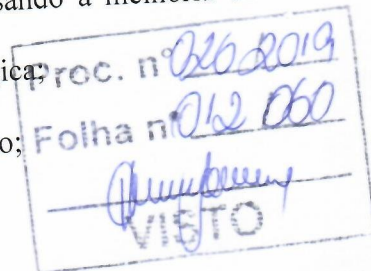 sando a
ica;
Proc. nº 026.2019
o;
Folha nº 012 060
VISTO